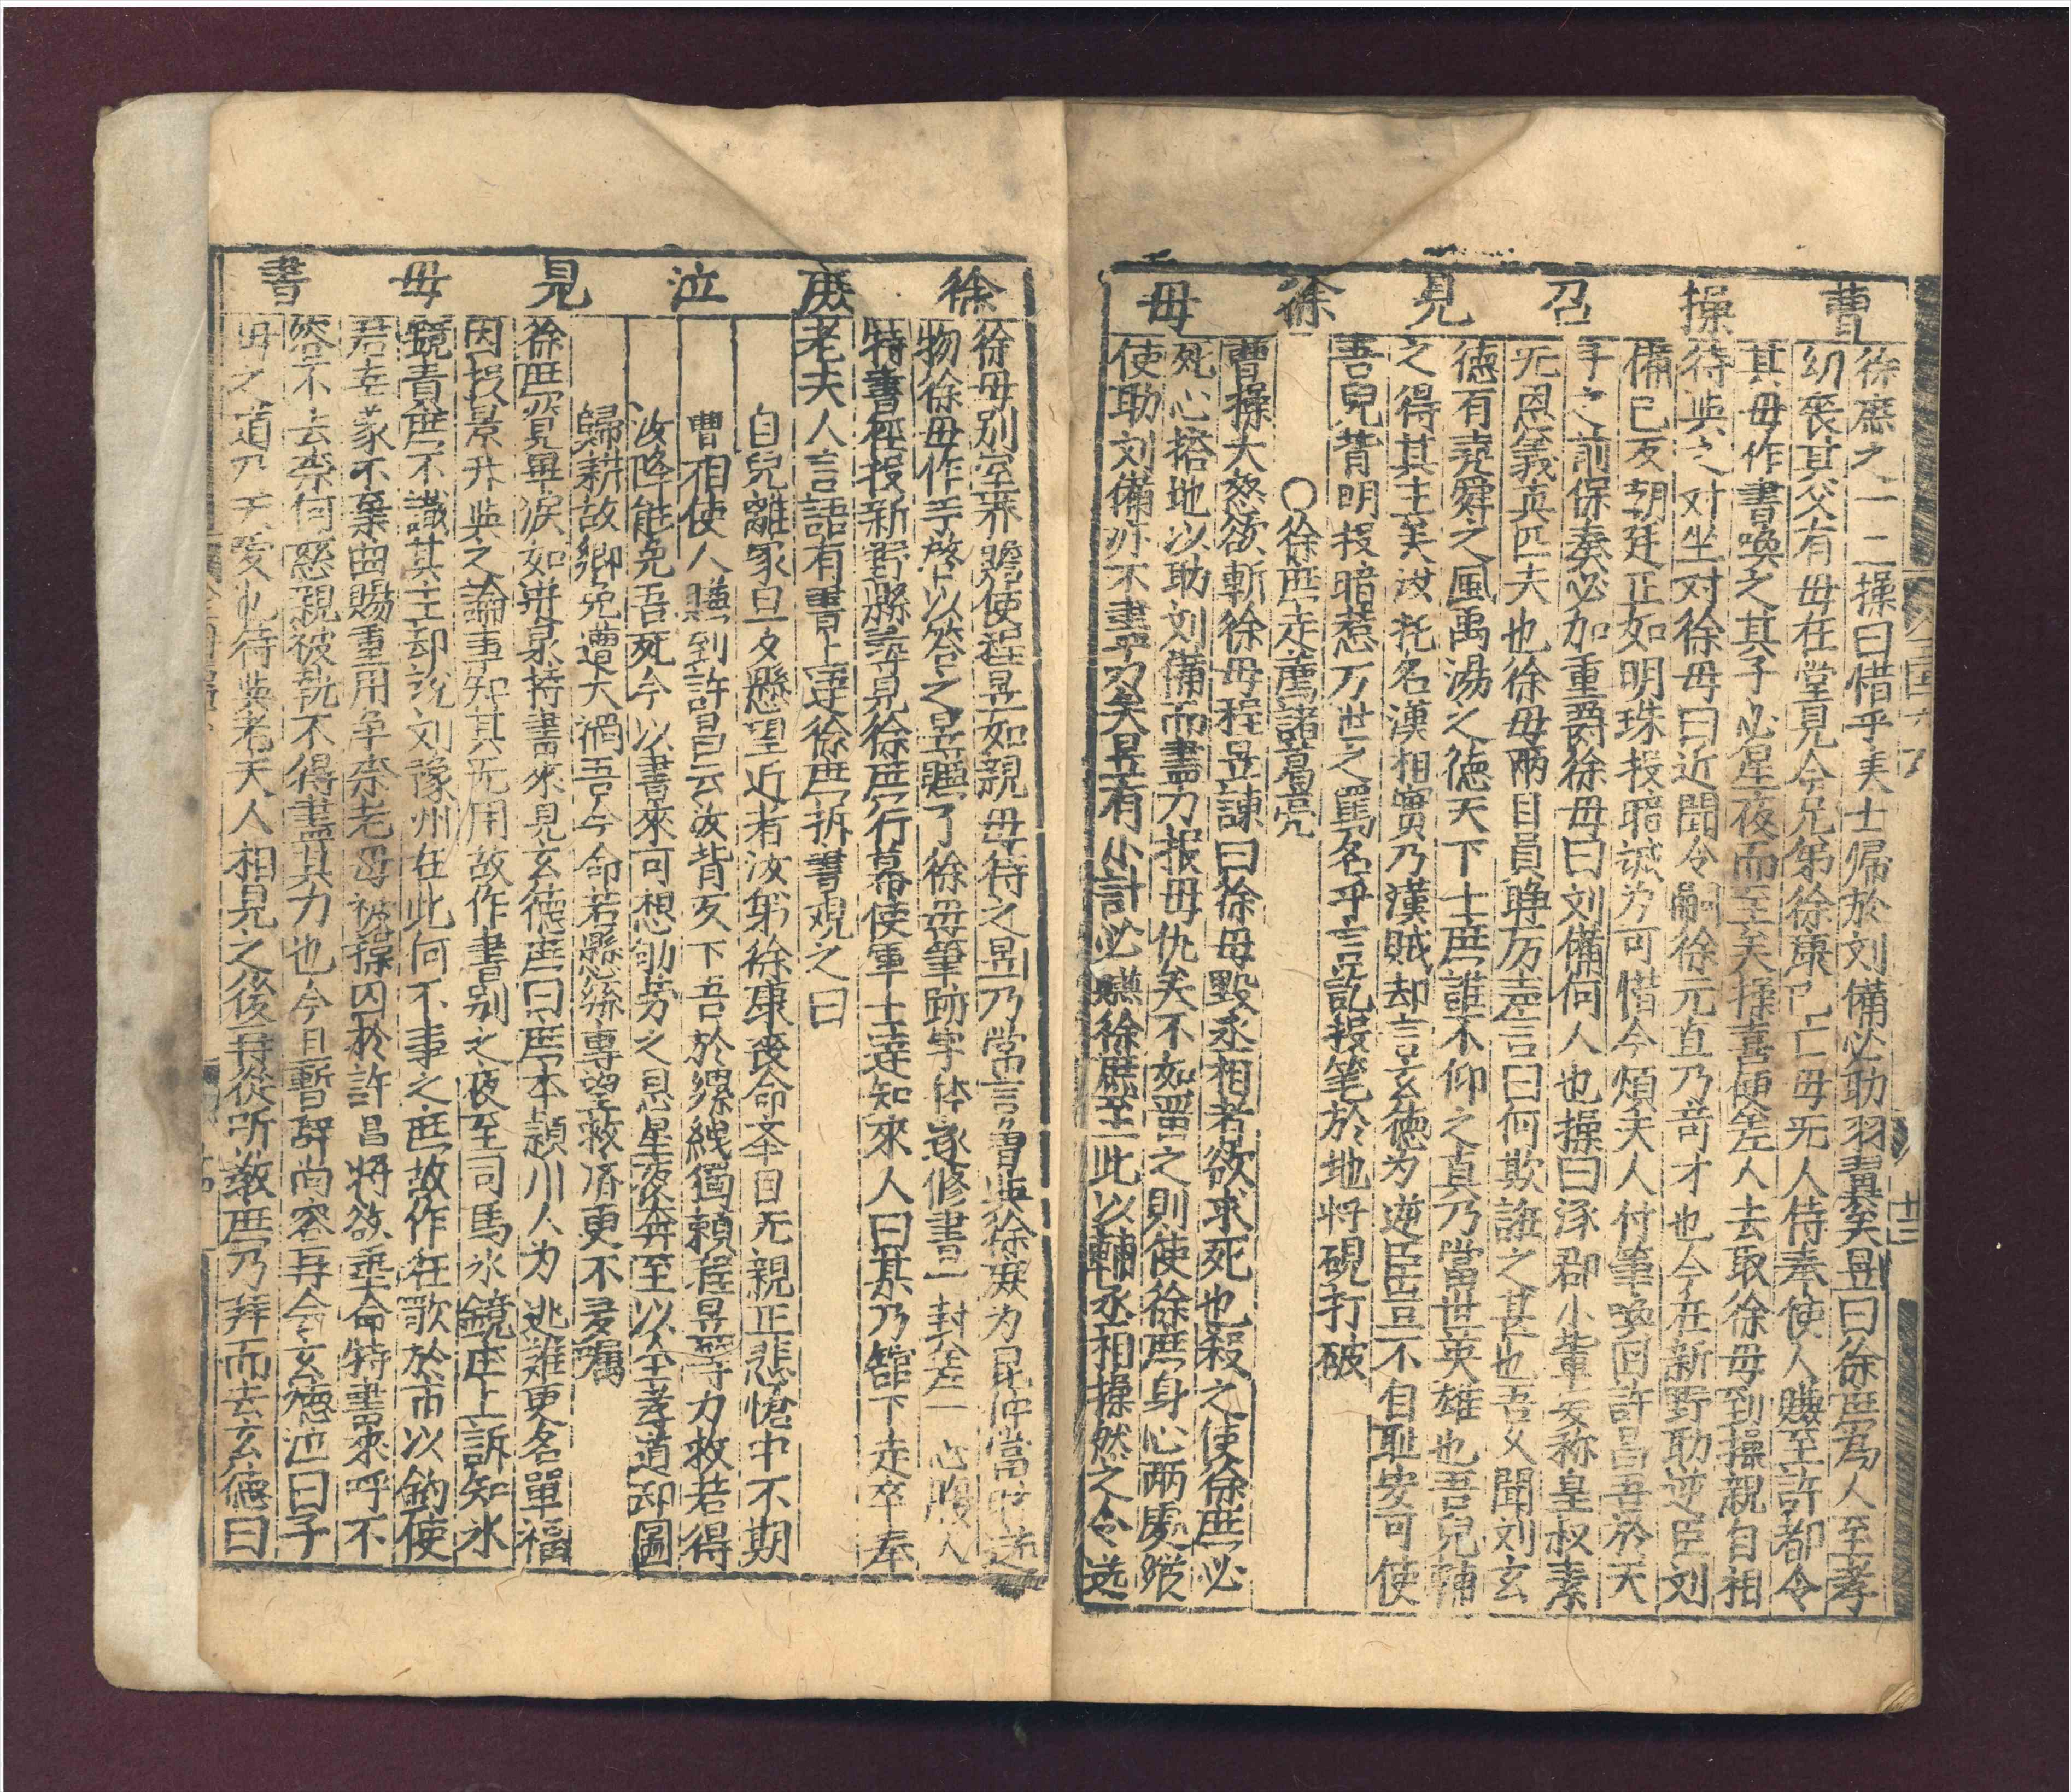 曹操召見徐母
徐庶之一二操曰惜乎美士歸於刘備必助羽翼矣昱曰徐庶為人至孝
幼喪其父有母在堂見今兄弟徐康已亡母无人侍奉使人賺至許都令
其母作書喚之其子必星夜而至矣操喜便差人去取徐母到操親自相
待吳之对坐对徐母曰近聞令嗣徐元直乃奇才也今在新野助逆臣刘
備已反朝廷正如明珠投暗誠为可惜今煩夫人付筆喚回許昌吾於天
子之前保奏必加重爵徐母曰刘備何人也操曰涿郡小輩妄称皇叔素
无恩義英匹夫也徐母兩目員睁厉声言曰何欺誑之甚也吾久聞刘玄
德有堯舜之風禹湯之德天下士庶誰不仰之真乃當世英雄也吾兒輔
之得其主矣汝托名漢相實乃漢賊却言玄德为逆臣豈不自耻安可使
吾兒背明投暗惹万世之罵名乎言訖投笔於地将硯打破
〇徐庶走薦諸葛亮
曹操大怒欲斬徐母程昱諫曰徐母毀丞相者欲求死也殺之使徐庶必
死心搭地以助刘備而盡力报母仇矣不如留之則使徐庶身心兩處縱
使助刘備亦不盡力矣昱有小計必賺徐庶至此以輔丞相操然之令送
徐庶泣見母書
徐母别室养贍使程昱如親母待之昱乃常言曾與徐庶为昆仲當時送
物徐母作手啓以答之昱賺了徐母筆跡字体遂修書一封差一心腹人
特書徑投新野縣尋見徐庶行幕使軍士達知來人曰某乃舘下走卒奉
老夫人言語有書上達徐庶拆書观之曰
自兒離家旦夕懸望近者汝弟徐康喪命本日无親正悲愴中不期
曹相使人賺到許昌云汝背反下吾於縲絏獨賴程昱等力救若得
汝降能免吾死今以書來可想劬劳之恩星夜奔至以全孝道却圖
歸耕故鄉免遭大禍吾今命若懸絲專望救濟更不多囑
徐庶覽畢淚如湧泉持書來見玄德庶曰庶本潁川人为逃難更名單福
因投景升吳之論事知其无用故作書别之夜至司馬水鏡庄上訴知水
鏡責庶不識其主却說刘豫州在此何不事之庶故作狂歌於市以釣使
君幸蒙不棄曲賜重用争奈老母被操囚於許昌将欲垂命特書來呼不
容不去奈何慈親被執不得盡其力也今日暫辞尚容再会玄德泣曰子
母之道乃天爱也待與老夫人相見之後再從所教庶乃拜而去玄德曰